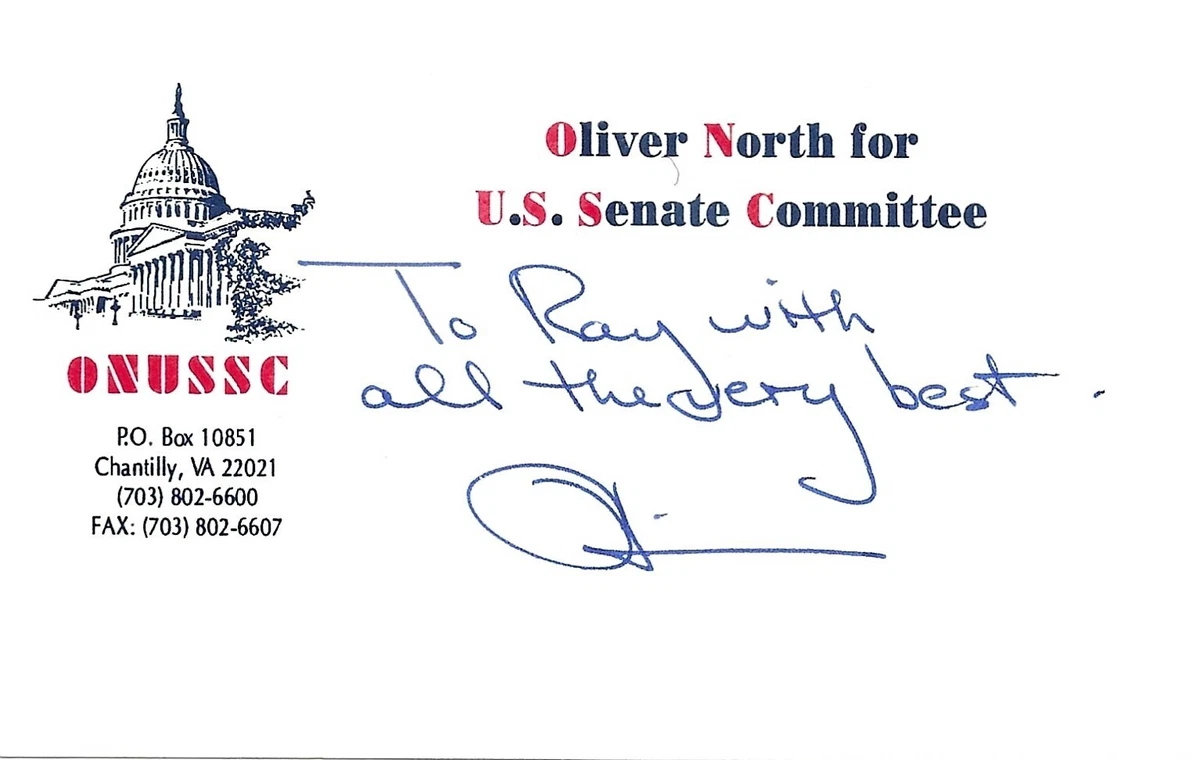 Oliver North for
U.S. Senate Committee
To Ray with
all the very best.
ONUSSC
P.O. Box 10851
Chantilly, VA 22021
(703) 802-6600
FAX: (703) 802-6607